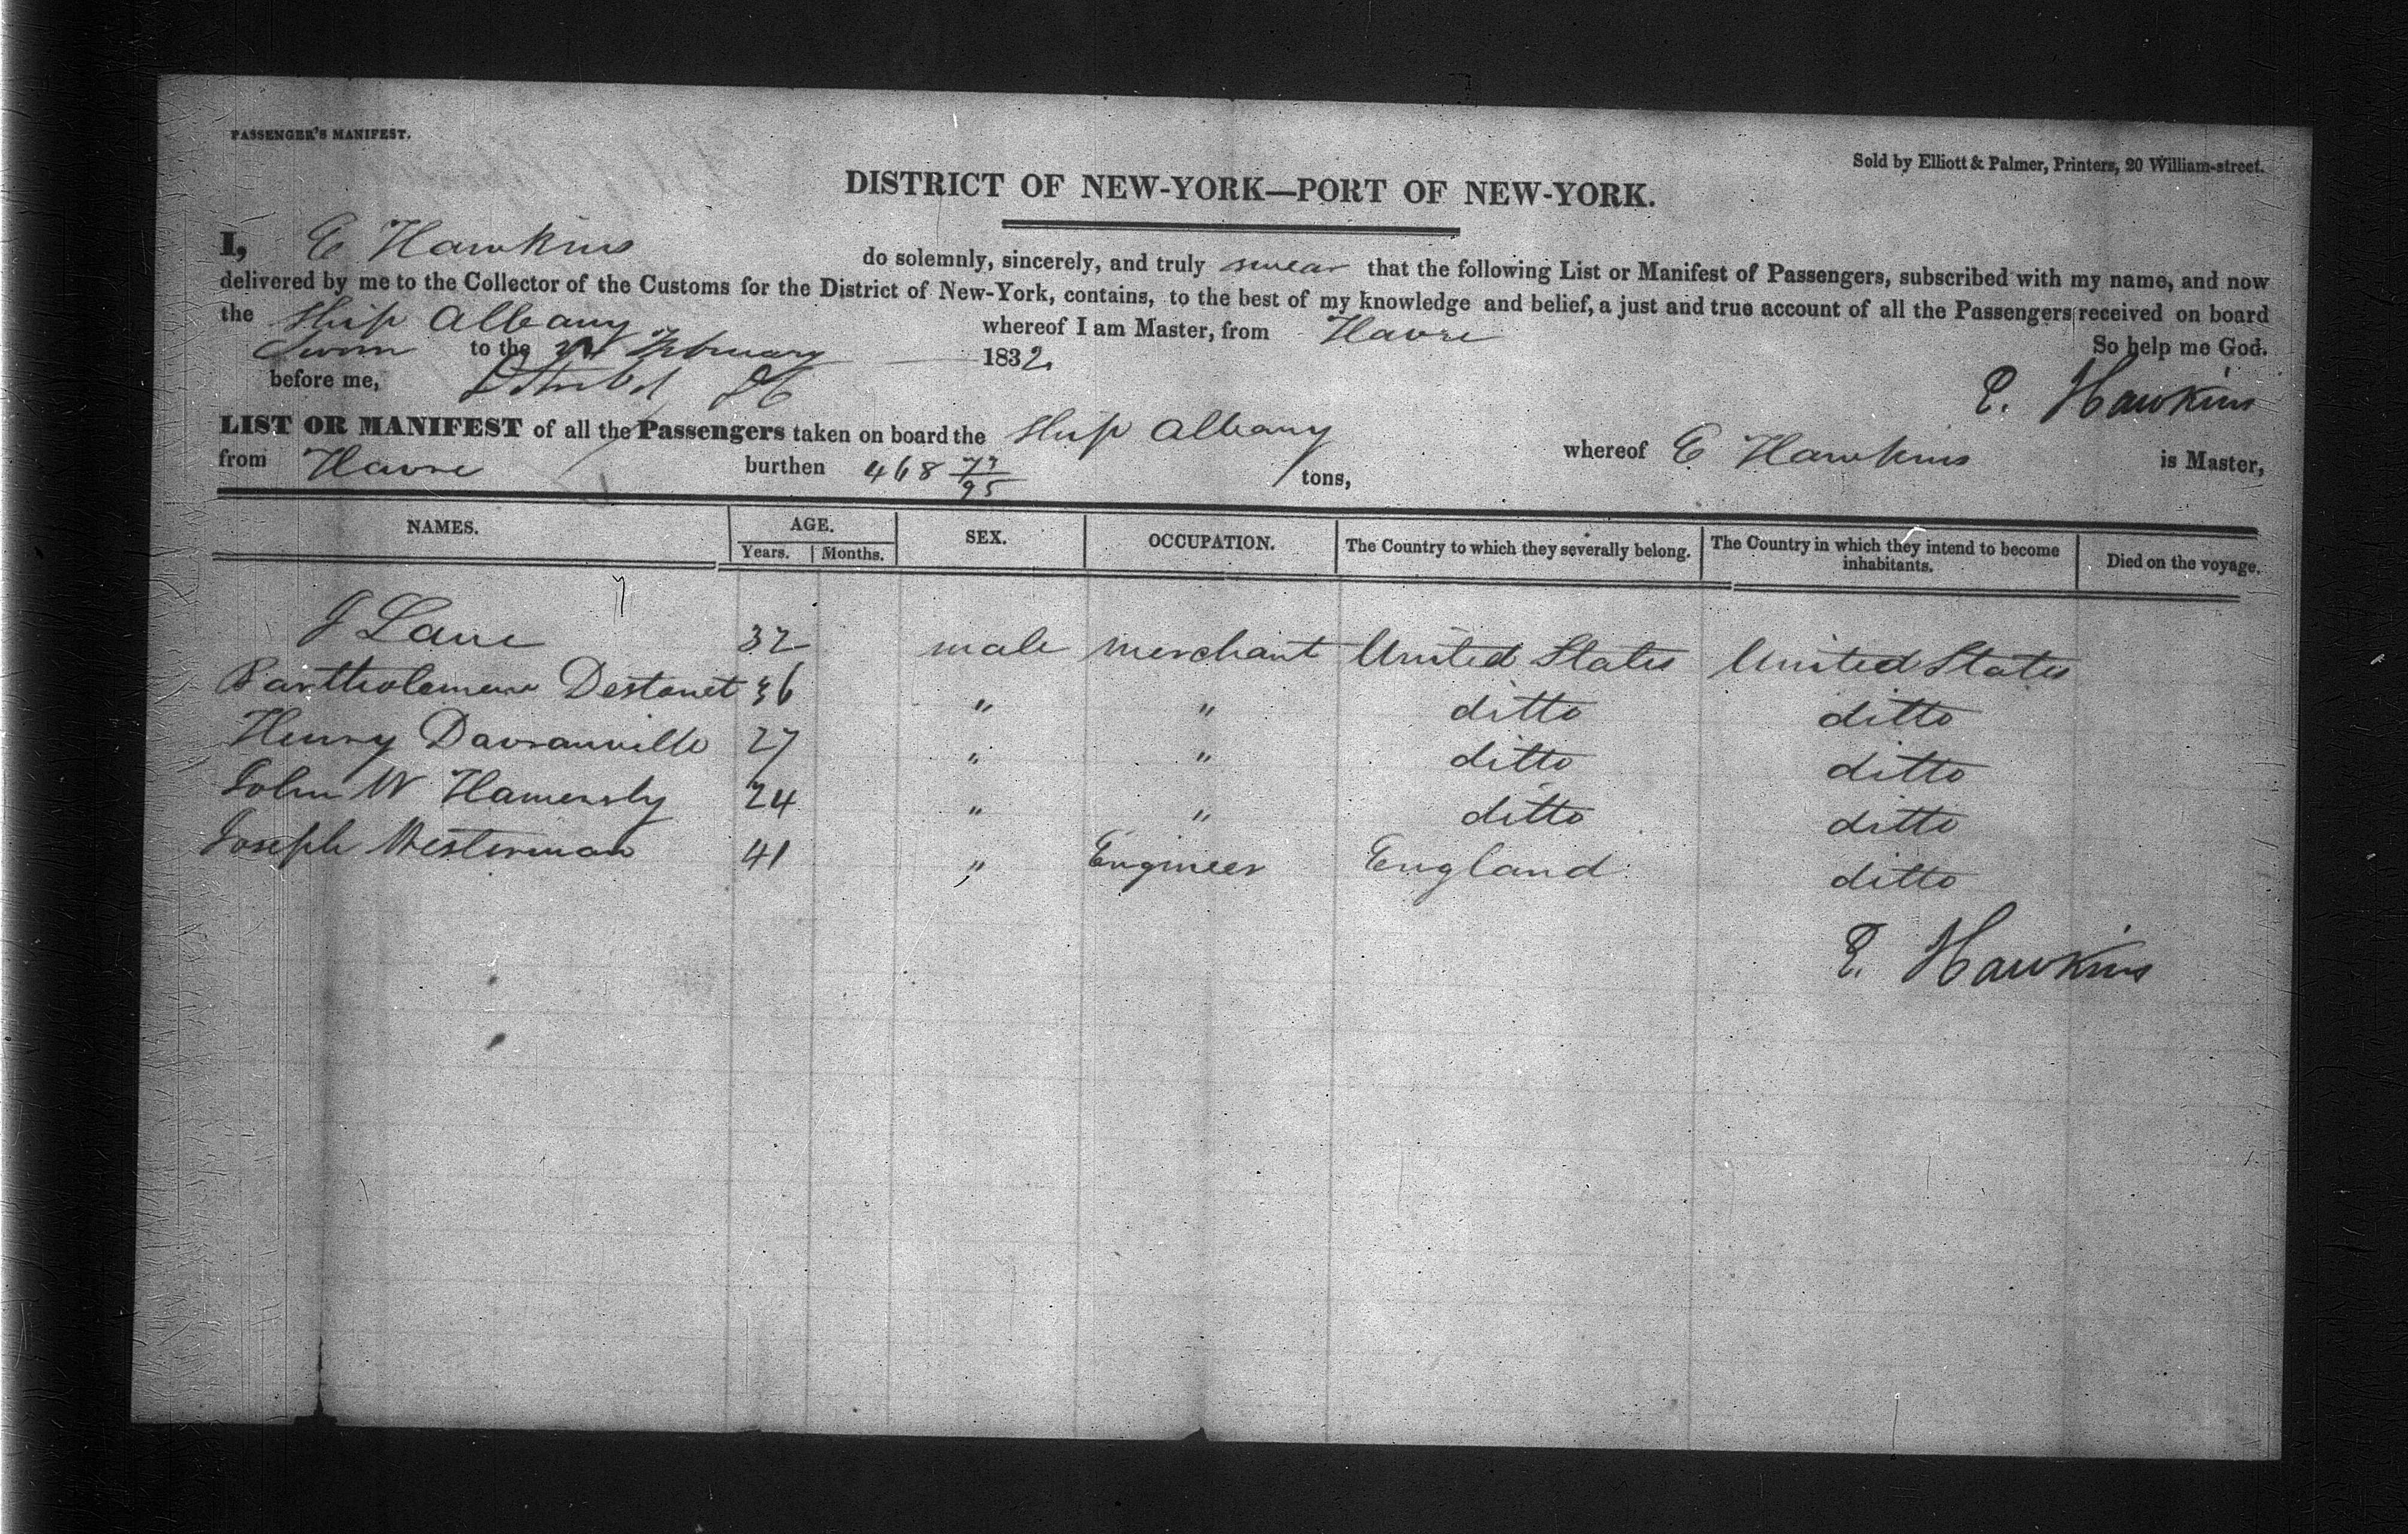 PASSENGER'S MANIFEST.
Sold by Elliott & Palmer, Printers, 20 William-street.
DISTRICT OF NEW-YORK—PORT OF NEW-YORK.
I, E Hawkins do solemnly, sincerely, and truly swear that the following List or Manifest of Passengers, subscribed with my name, and now
delivered by me to the Collector of the Customs for the District of New-York, contains, to the best of my knowledge and belief, a just and true account of all the Passengers received on board
the Ship Albany whereof I am Master, from Havre
Sworn to the February 1832. So help me God.
before me, E. Hawkins
LIST OR MANIFEST of all the Passengers taken on board the Ship Albany whereof E Hawkins is Master,
from Havre burthen 468 77/95 tons,
NAMES. AGE. Years. Months. SEX. OCCUPATION. The Country to which they severally belong. The Country in which they intend to become inhabitants. Died on the voyage.
J Lane 32 male merchant United States United States
Bartholemew 36 " " ditto ditto
Henry 27 " " ditto ditto
John W Hamersly 24 " " ditto ditto
Joseph Westerman 41 " Engineer England ditto
E. Hawkins